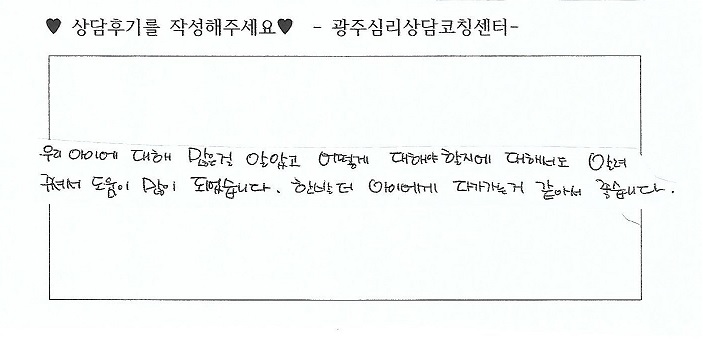 ♥ 상담후기를 작성해주세요♥ - 광주심리상담코칭센터-
우리 아이에 대해 많은걸 알았고 어떻게 대해야할지에 대해서도 알려
주셔서 도움이 많이 되었습니다. 한발 더 아이에게 다가가는거 같아서 좋습니다.